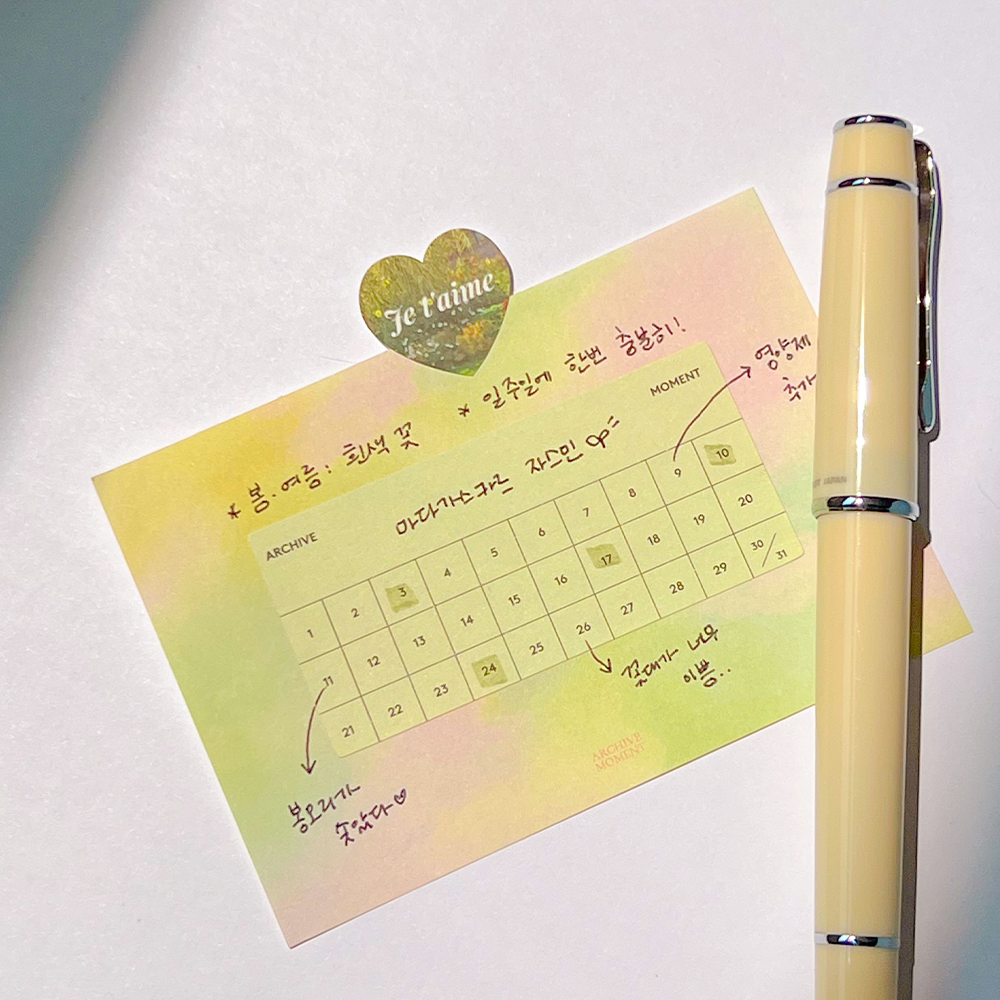 Je t'aime
* 일주일에 한번 충분히!
* 봄.여름: 흰색 꽃
영양제
추가
MOMENT
ARCHIVE
마다가스카르 자스민
1 2 3 4 5 6 7 8 9 10
11 12 13 14 15 16 17 18 19 20
21 22 23 24 25 26 27 28 29 30/31
꽃대가 너무
이쁨..
봉오리가
솟았다♡
ARCHIVE
MOMENT
JAPAN